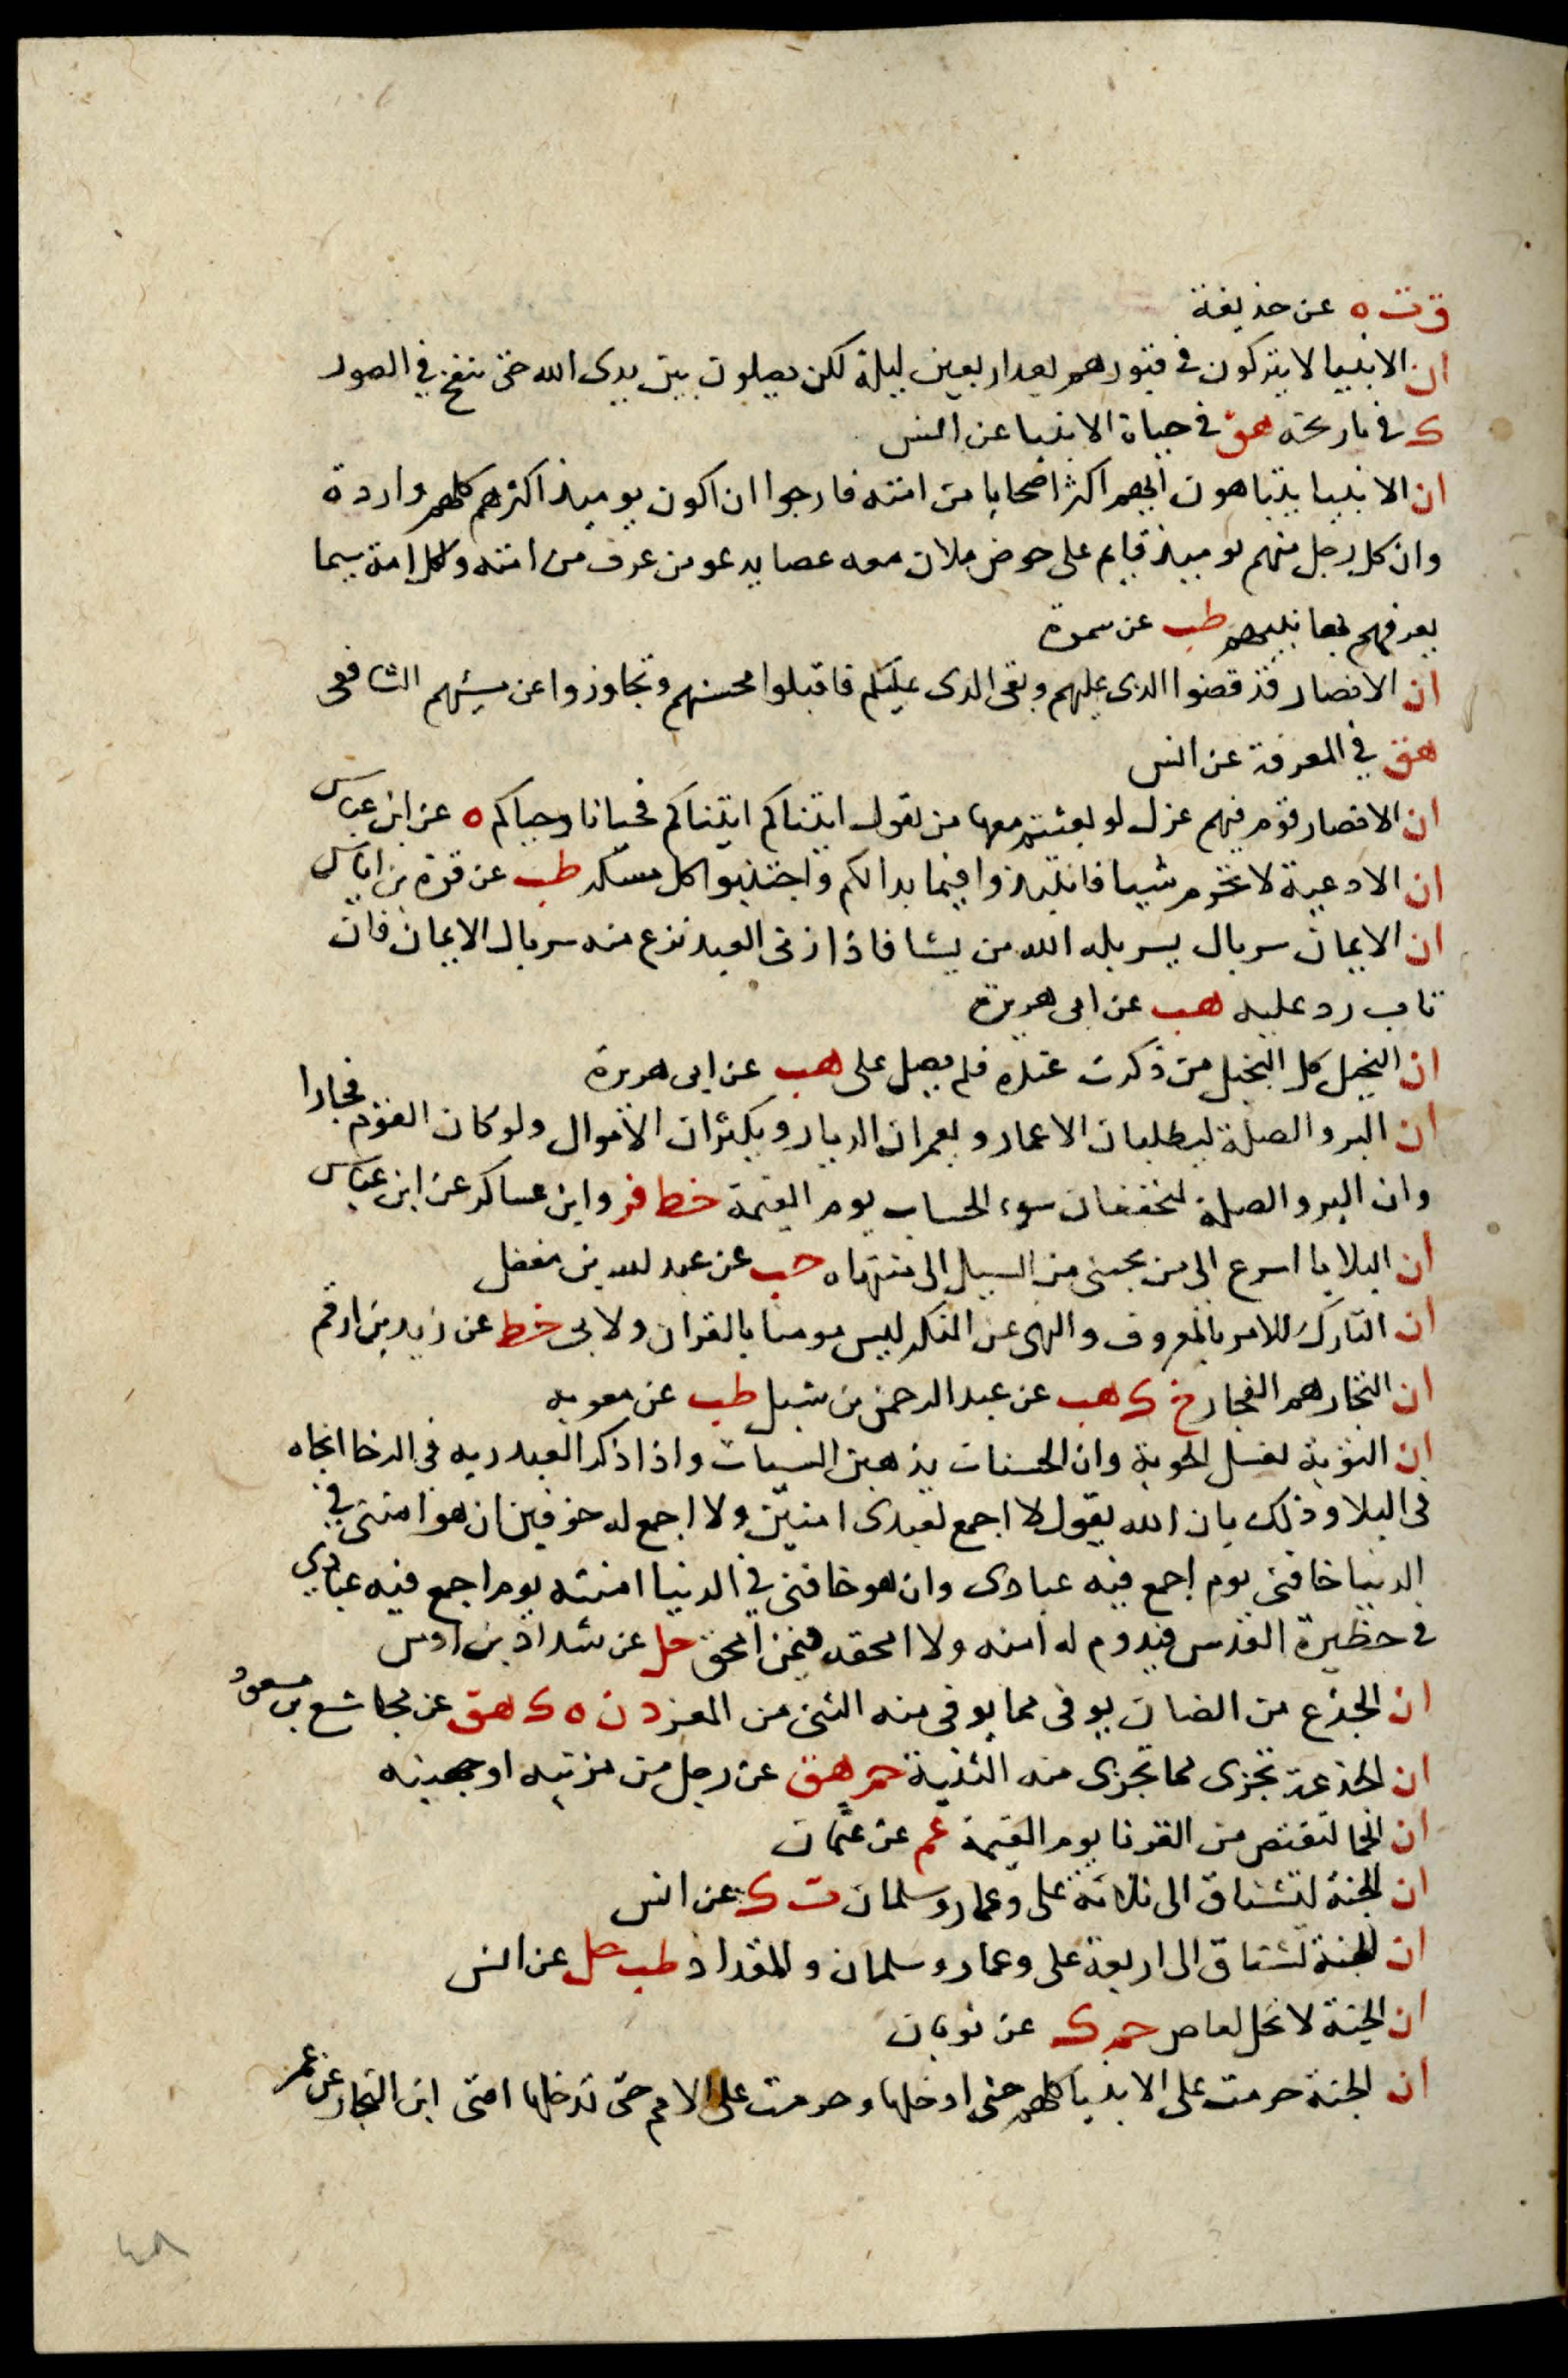 ق ت ه عن حذيفة
ان الانبيا لا يتركون في قبورهم بعد اربعين ليلة لكن يصلون بين يدى الله حتى ينفخ في الصور
ك في تاريخه هق في حياة الانبيا عن انس
ان الانبيا يتباهون ايهم اكثر اصحابا من امته فارجوا ان اكون يوميذ اكثرهم كلهم واردة
وان كل رجل منهم يوميذ قايم على حوض ملان معه عصا يدعو من عرف من امته ولكل امة سيما
يعرفهم بها نبيهم طب عن سمرة
ان الانصار قد قضوا الذى عليهم وبقى الذى عليكم فاقبلوا محسنهم وتجاوزوا عن مسيئهم الشافعى
هق في المعرفة عن انس
ان الانصار قوم فيهم غزل لو بعثتم معها من يقول اتيناكم اتيناكم فحيانا وحياكم ه عن ابن عباس
ان الاوعية لا تحرم شيا فانتبذوا فيما بدا لكم واجتنبوا كل مسكر طب عن قرة بن اياس
ان الايمان سربال يسربله الله من يشا فاذا زنى العبد نزع منه سربال الايمان فان
تاب رد عليه هب عن ابى هريرة
ان البخيل كل البخيل من ذكرت عنده فلم يصل على هب عن ابى هريرة
ان البر والصلة ليطيلان الاعمار ويعمران الديار ويكثران الاموال ولو كان القوم فجارا
وان البر والصلة ليخففان سوء الحساب يوم القيمة خط فر وابن عساكر عن ابن عباس
ان البلايا اسرع الى من يحبنى من السيل الى منتهاه حب عن عبد الله بن مغفل
ان التارك للامر بالمعروف والنهى عن المنكر ليس مومنا بالقران ولا بى خط عن زيد بن ارقم
ان التجار هم الفجار حم ك هب عن عبد الرحمن بن شبل طب عن معويه
ان التوبة تغسل الحوبة وان الحسنات يذهبن السيات واذا ذكر العبد ربه في الرخا انجاه
في البلا وذلك بان الله يقول لا اجمع لعبدى امنين ولا اجمع له خوفين ان هو امننى في
الدنيا خافنى يوم اجمع فيه عبادى وان هو خافنى في الدنيا امنته يوم اجمع فيه عبادى
في حظيرة القدس فيدوم له امنه ولا امحقه فيمن امحق حل عن شداد بن اوس
ان الجذع من الضان يوفى مما يوفى منه الثنى من المعز د ن ه ك هق عن مجاشع بن مسعود
ان الجذعة تجزى مما تجزى منه الثنية حم هق عن رجل من مزينه او جهينه
ان الجما لتقتص من القرنا يوم القيمة عم عن عثمان
ان الجنة لتشتاق الى ثلاثة على وعمار وسلمان ت ك عن انس
ان الجنة تشتاق الى اربعة على وعمار وسلمان والمقداد طب حل عن انس
ان الجنة لا تحل لعاص حم ك عن ثوبان
ان الجنة حرمت على الانبيا كلهم حتى ادخلها وحرمت على الامم حتى تدخلها امتى ابن النجار عن عمر
٤٨